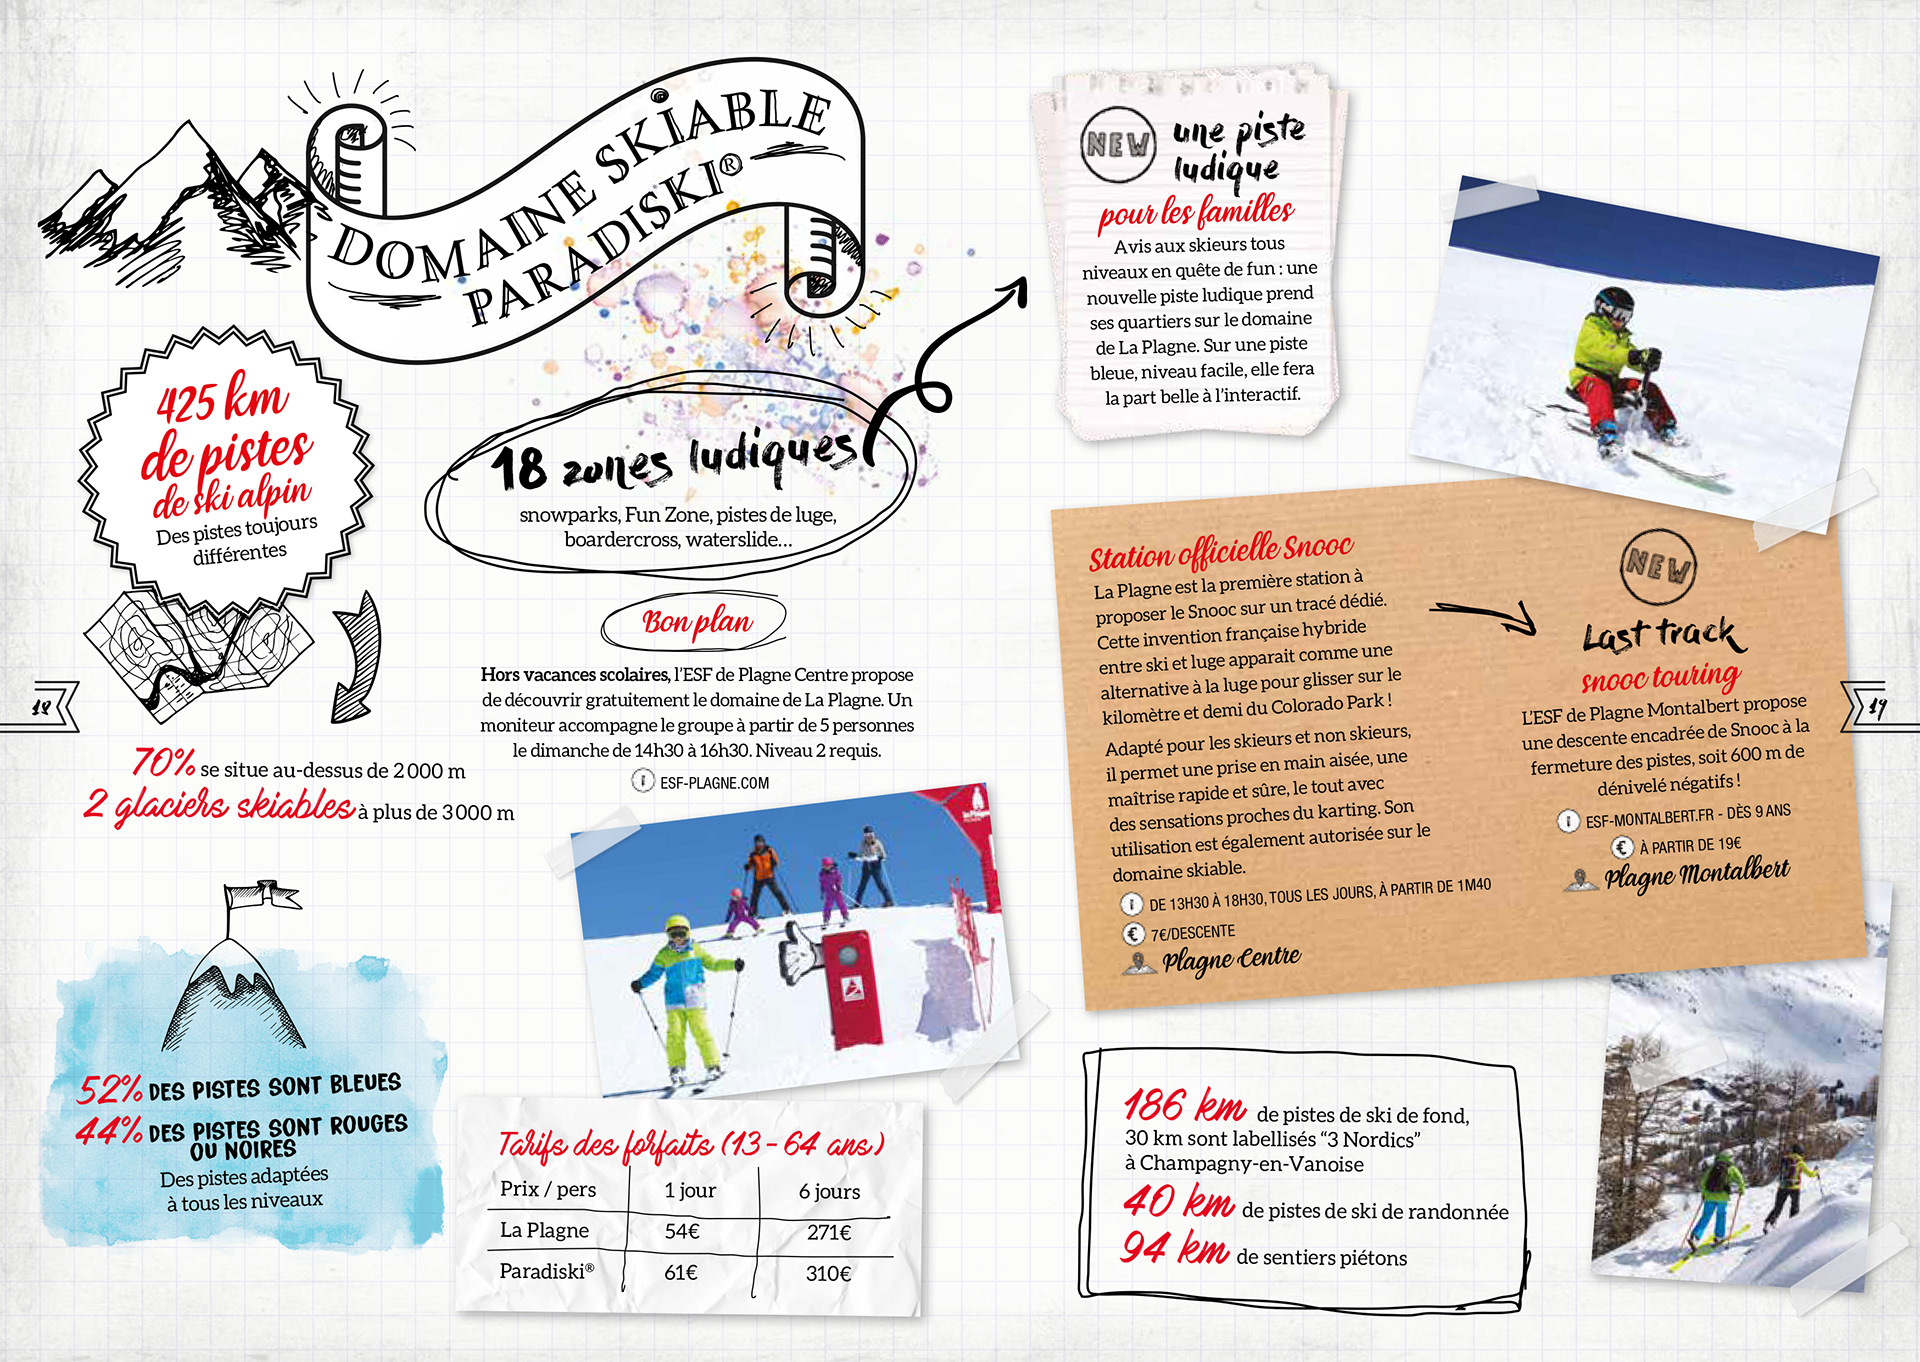 DOMAINE SKIABLE
PARADISKI®
425 km
de pistes
de ski alpin
Des pistes toujours
différentes
18 zones ludiques
snowparks, Fun Zone, pistes de luge,
boardercross, waterslide...
Bon plan
Hors vacances scolaires, l'ESF de Plagne Centre propose
de découvrir gratuitement le domaine de La Plagne. Un
moniteur accompagne le groupe à partir de 5 personnes
le dimanche de 14h30 à 16h30. Niveau 2 requis.
i ESF-PLAGNE.COM
18
70% se situe au-dessus de 2000 m
2 glaciers skiables à plus de 3000 m
52% DES PISTES SONT BLEUES
44% DES PISTES SONT ROUGES
OU NOIRES
Des pistes adaptées
à tous les niveaux
Tarifs des forfaits (13 - 64 ans)
Prix / pers 1 jour 6 jours
La Plagne 54€ 271€
Paradiski® 61€ 310€
NEW une piste
ludique
pour les familles
Avis aux skieurs tous
niveaux en quête de fun : une
nouvelle piste ludique prend
ses quartiers sur le domaine
de La Plagne. Sur une piste
bleue, niveau facile, elle fera
la part belle à l'interactif.
Station officielle Snooc
La Plagne est la première station à
proposer le Snooc sur un tracé dédié.
Cette invention française hybride
entre ski et luge apparait comme une
alternative à la luge pour glisser sur le
kilomètre et demi du Colorado Park !
Adapté pour les skieurs et non skieurs,
il permet une prise en main aisée, une
maîtrise rapide et sûre, le tout avec
des sensations proches du karting. Son
utilisation est également autorisée sur le
domaine skiable.
i DE 13H30 À 18H30, TOUS LES JOURS, À PARTIR DE 1M40
€ 7€/DESCENTE
Plagne Centre
NEW
Last track
snooc touring
L'ESF de Plagne Montalbert propose
une descente encadrée de Snooc à la
fermeture des pistes, soit 600 m de
dénivelé négatifs !
i ESF-MONTALBERT.FR - DÈS 9 ANS
€ À PARTIR DE 19€
Plagne Montalbert
19
186 km de pistes de ski de fond,
30 km sont labellisés “3 Nordics”
à Champagny-en-Vanoise
40 km de pistes de ski de randonnée
94 km de sentiers piétons